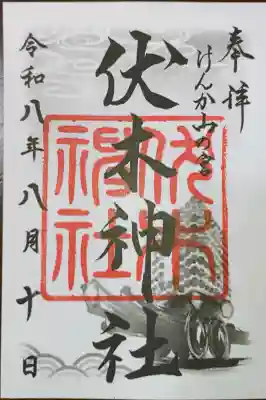 奉拝
けんか山の宮
伏木神社
伏木神社
令和八年八月十日